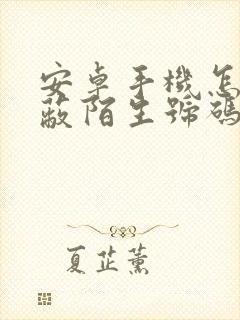 安卓手機怎
蔽陌生號碼
夏芷薰